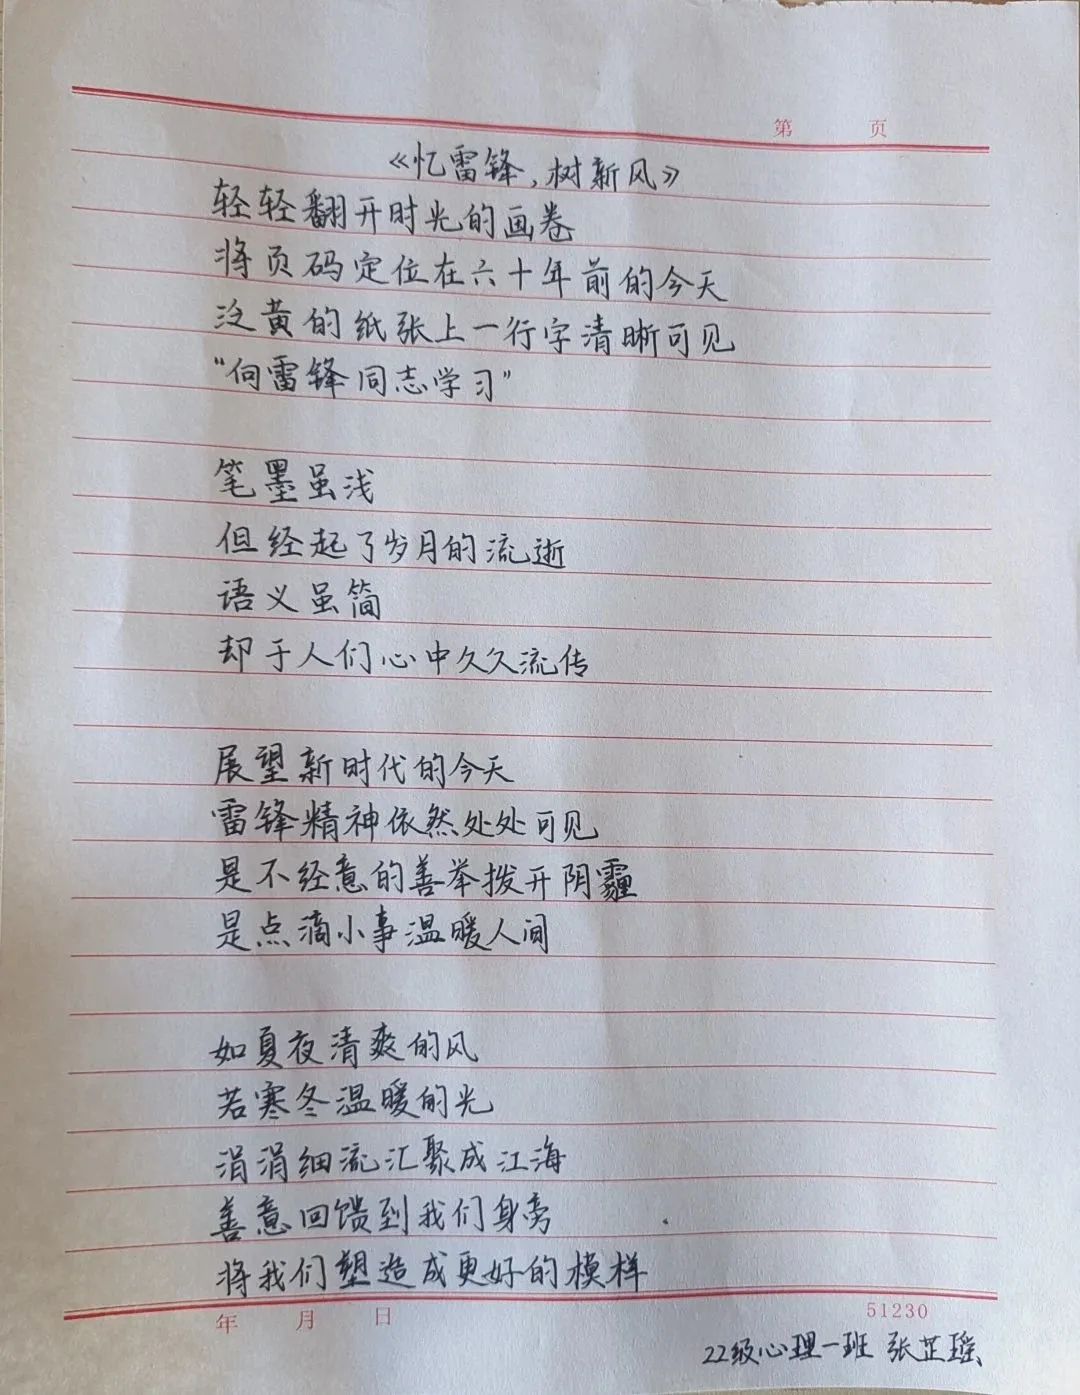 第 页
《忆雷锋,树新风》
轻轻翻开时光的画卷
将页码定位在六十年前的今天
泛黄的纸张上一行字清晰可见
“向雷锋同志学习”
笔墨虽浅
但经起了岁月的流逝
语义虽简
却于人们心中久久流传
展望新时代的今天
雷锋精神依然处处可见
是不经意的善举拨开阴霾
是点滴小事温暖人间
如夏夜清爽的风
若寒冬温暖的光
涓涓细流汇聚成江海
善意回馈到我们身旁
将我们塑造成更好的模样
年 月 日 51230
22级心理一班 张芷瑶